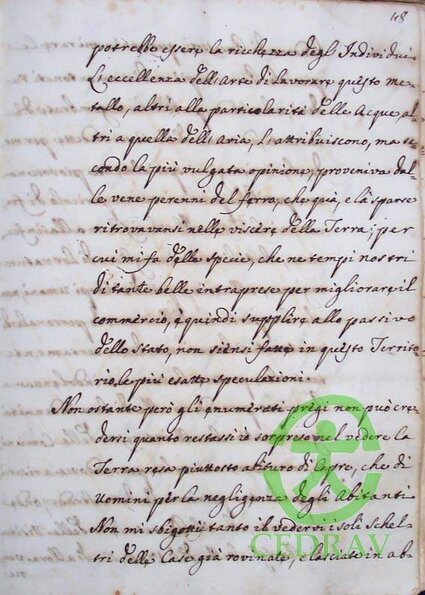 48
potrebbe essere la ricchezza degl'Individui
L'eccellenza dell'Arte di lavorare questo me-
tallo, altri alla particolarità delle Acque, al
tri a quella dell'Aria, l'attribuiscono, ma se
condo la più vulgata opinione, proveniva dal-
le vene perenni del ferro, che quà, e là sparse
ritrovavansi nelle viscere della Terra; per
cui mi fa della specie, che ne tempi nostri
di tante belle intraprese per migliorare il
commercio, e quindi supplire allo passivo
dello Stato, non siensi fatte in questo Territo-
rio le più esatte speculazioni.
Non ostante però gli enumerati pregi non può cre-
dersi quanto restassi io sorpreso nel vedere la
Terra resa piuttosto abituro di Lepre, che di
Uomini per la negligenza degli Abitanti
Non mi sbigottì tanto il vedervi i soli schel-
tri delle Case già rovinate, e lasciate in ab-
CEDRAV